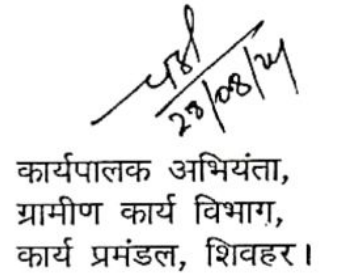 28/08/24
कार्यपालक अभियंता,
ग्रामीण कार्य विभाग,
कार्य प्रमंडल, शिवहर।